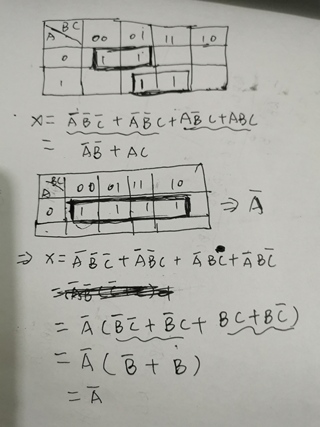 A BC 00 01 11 10
0 1 1
1 1 1
X = A̅B̅C̅ + A̅B̅C + AB̅C + ABC
= A̅B̅ + AC
A BC 00 01 11 10
0 1 1 1 1 ⇒ A̅
⇒ X = A̅B̅C̅ + A̅B̅C + A̅BC + A̅BC̅
= A̅(B̅C̅ + B̅C + BC + BC̅)
= A̅(B̅ + B)
= A̅